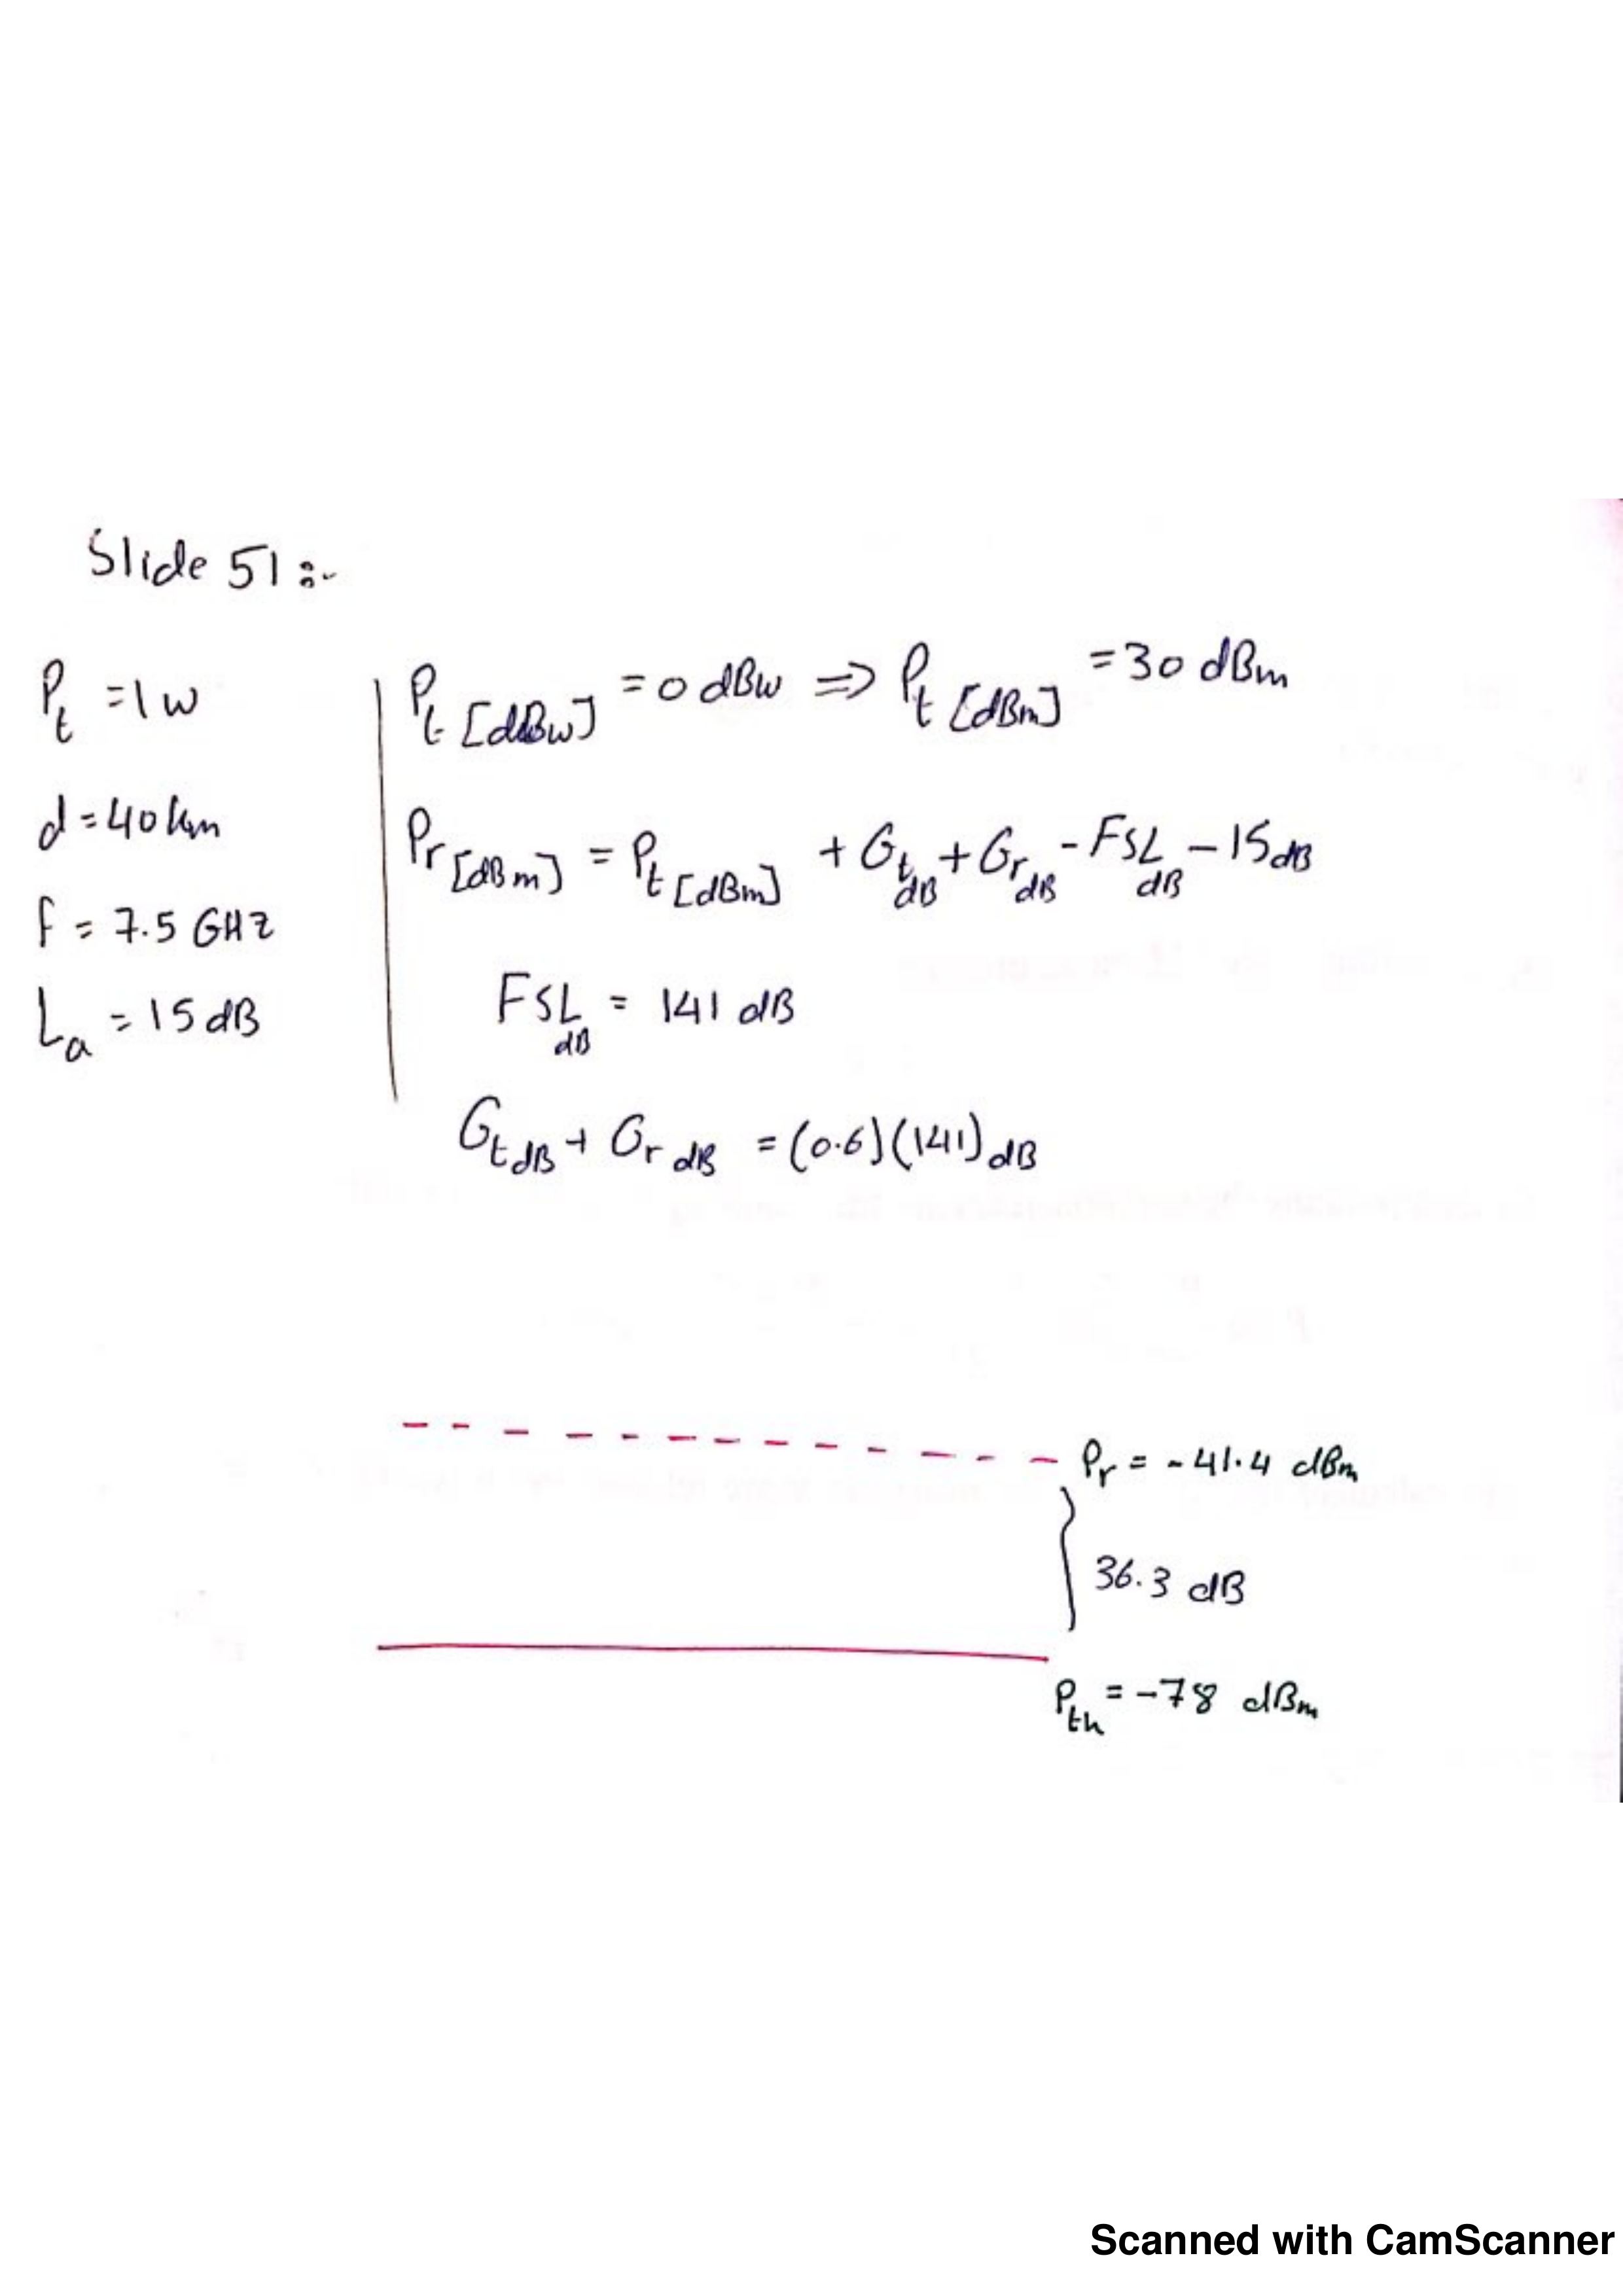 Slide 51:-
Pt = 1 w
d = 40 km
f = 7.5 GHz
La = 15 dB
Pt [dBw] = 0 dBw => Pt [dBm] = 30 dBm
Pr [dBm] = Pt [dBm] + Gt dB + Gr dB - FSL dB - 15 dB
FSL dB = 141 dB
Gt dB + Gr dB = (0.6)(141) dB
Pr = -41.4 dBm
36.3 dB
Pth = -78 dBm
Scanned with CamScanner